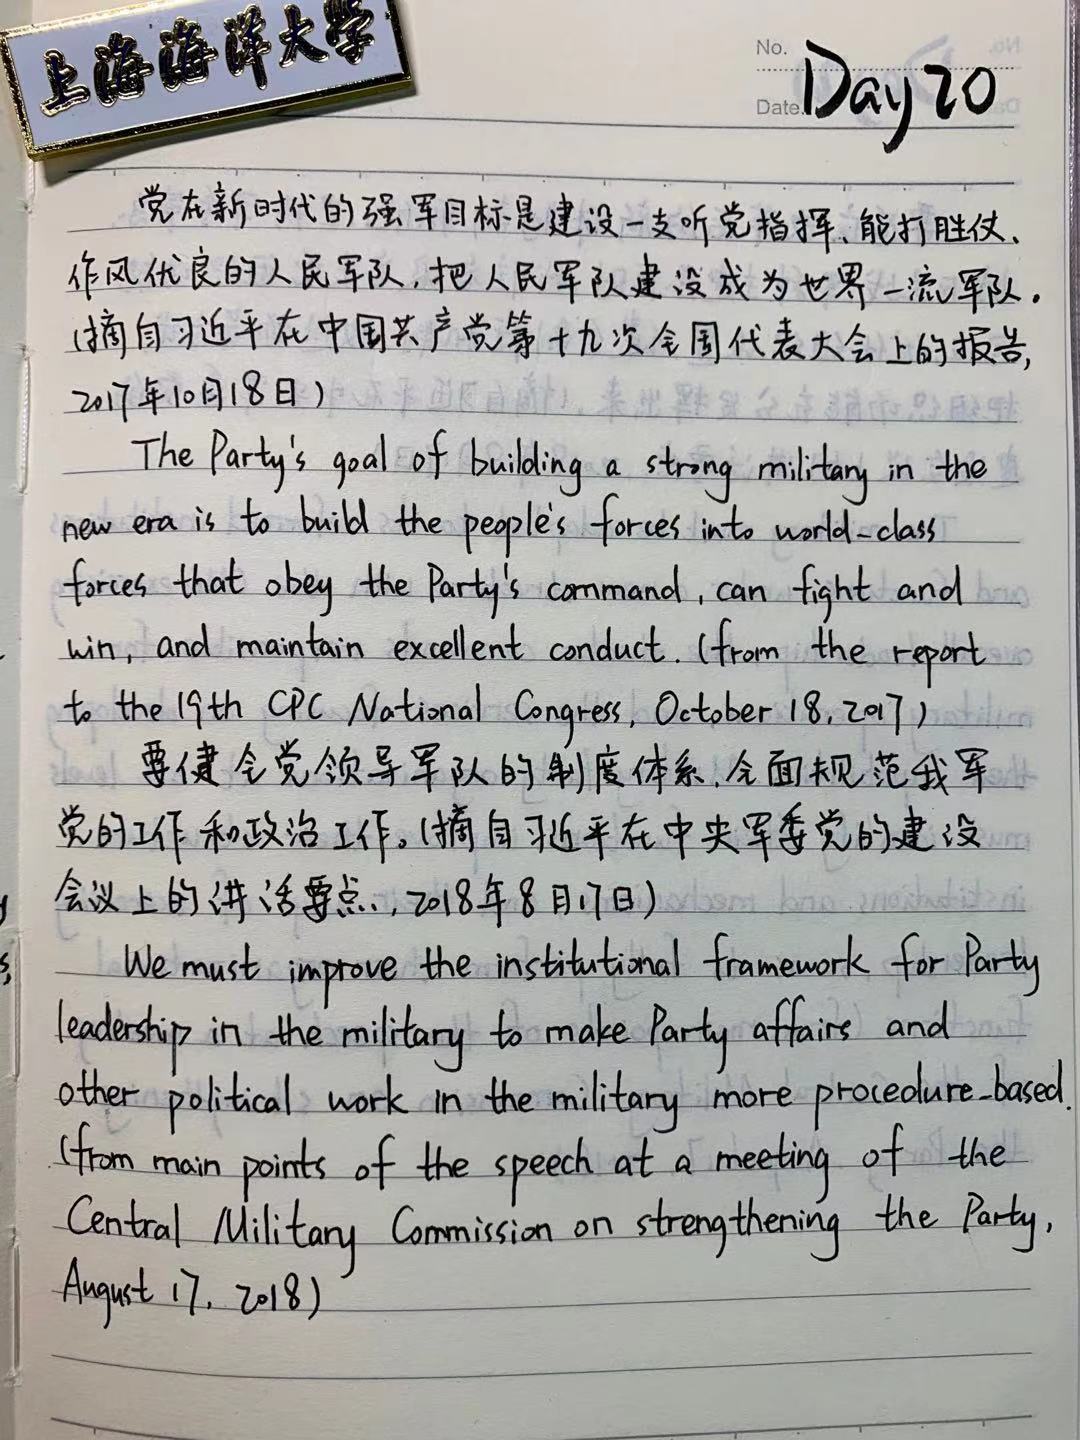 上海海洋大学
No.
Day 20
Date.
党在新时代的强军目标是建设一支听党指挥、能打胜仗、
作风优良的人民军队,把人民军队建设成为世界一流军队.
(摘自习近平在中国共产党第十九次全国代表大会上的报告,
2017年10月18日)
The Party's goal of building a strong military in the
new era is to build the people's forces into world-class
forces that obey the Party's command, can fight and
win, and maintain excellent conduct. (from the report
to the 19th CPC National Congress, October 18, 2017)
要健全党领导军队的制度体系,全面规范我军
党的工作和政治工作。(摘自习近平在中央军委党的建设
会议上的讲话要点, 2018年8月17日)
We must improve the institutional framework for Party
leadership in the military to make Party affairs and
other political work in the military more procedure-based.
(from main points of the speech at a meeting of the
Central Military Commission on strengthening the Party,
August 17, 2018)